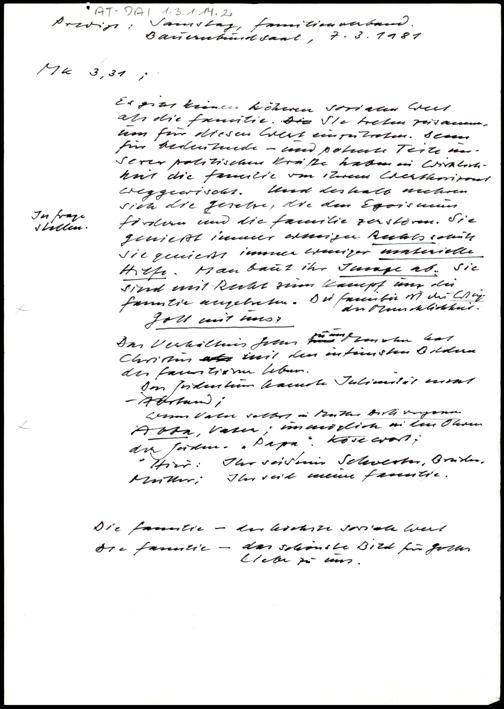 AT-DAI 1.3.1.14.2
Predigt: Samstag, Familienverband.
Bauernbundsaal, 7.3.1981
Mk 3,31;
Es gibt keinen höheren sozialen Wert
als die Familie. Sie treten zusammen,
um für diesen Wert einzutreten. Denn
für bedeutende – und potente Teile un-
serer politischen Kräfte haben in Wirklich-
keit die Familie von ihrem Werthorizont
weggewischt. Und deshalb mehren
sich die Gesetze, die den Egoismus
In Frage
stellen.
fördern und die Familie zerstören. Sie
genießt immer weniger Rechtsschutz
sie genießt immer weniger materielle
Hilfe. Man baut ihr Image ab. Sie
sind mit Recht zum Kampf um die
Familie angetreten. Die Familie ist die
der Menschlichkeit.
Gott mit uns:
Das Verhältnis Gottes zu uns Menschen hat
Christus mit den intimsten Bildern
des familiären Lebens.
Das Judentum kannte
– Abstand;
Abba, Vater; unmöglich in den Ohren
der Juden. "Papa". Kosewort;
"Hier: Ihr seid mir Schwester, Bruder,
Mutter; Ihr seid meine Familie.
Die Familie – der höchste soziale Wert
Die Familie – das schönste Bild für Gottes
Liebe zu uns.